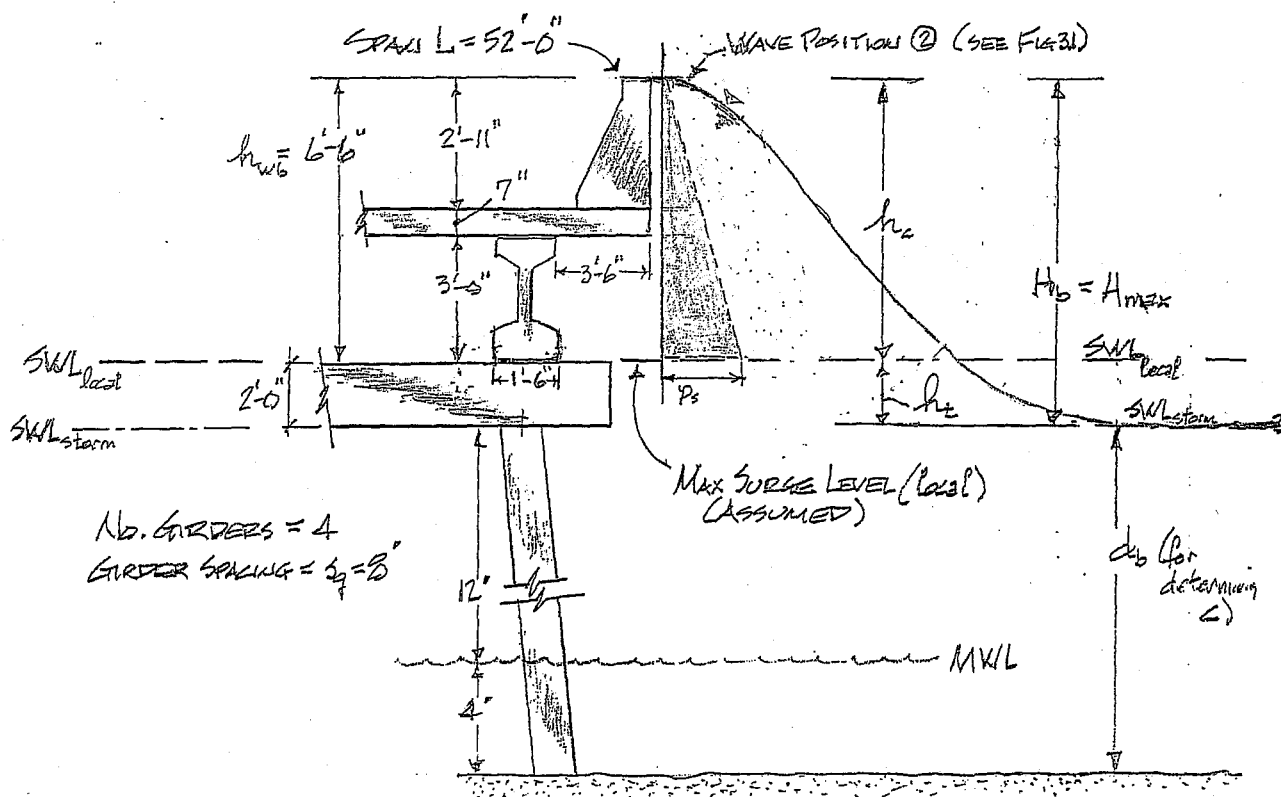 SPAN L = 52'-0"
WAVE POSITION ② (SEE FIG 3.1)
h_wb = 6'-6"
2'-11"
7"
3'-0"
3'-6"
h_c
H_b = H_max
SWL_local
SWL_local
2'-0"
1'-6"
P_s
h_t
SWL_storm
SWL_storm
MAX SURGE LEVEL (local)
(ASSUMED)
No. GIRDERS = 4
GIRDER SPACING = S_g = 8'
12'
d_b (for
determining
MWL
4'